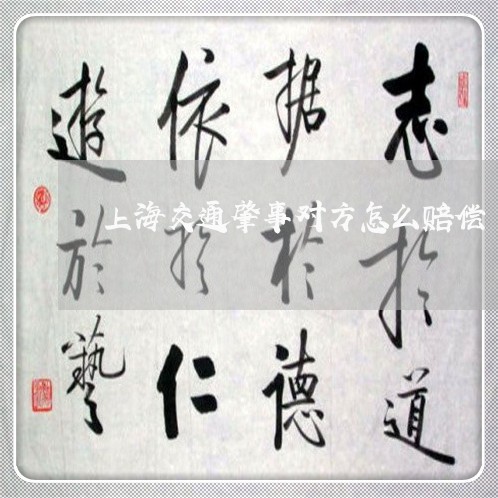 志於道
据於德
依於仁
遊於藝
上海交通肇事对方怎么赔偿